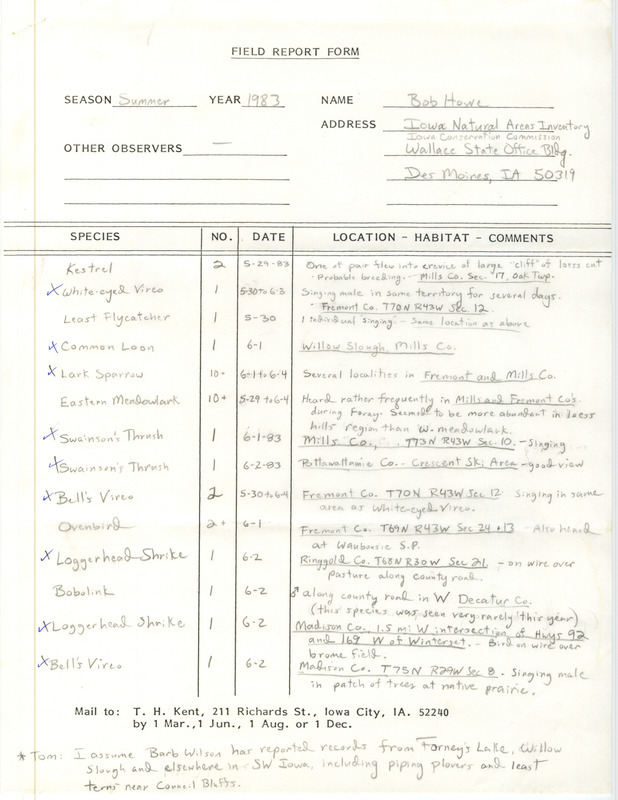 FIELD REPORT FORM
SEASON Summer YEAR 1983 NAME Bob Howe
ADDRESS Iowa Natural Areas Inventory
Iowa Conservation Commission
OTHER OBSERVERS — Wallace State Office Bldg.
Des Moines, IA 50319
SPECIES NO. DATE LOCATION - HABITAT - COMMENTS
Kestrel 2 5-29-83 One of pair flew into crevice of large "cliff" of loess cut
- Probable breeding. - Mills Co. Sec. 17, Oak Twp.
X White-eyed Vireo 1 5-30 to 6-3 Singing male in same territory for several days.
- Fremont Co. T70N R43W Sec. 12.
Least Flycatcher 1 5-30 1 individual singing - Same location as above
X Common Loon 1 6-1 Willow Slough, Mills Co.
X Lark Sparrow 10- 6-1 to 6-4 Several localities in Fremont and Mills Co.
Eastern Meadowlark 10+ 5-29 to 6-4 Heard rather frequently in Mills and Fremont Co's.
during Foray. Seemed to be more abundant in loess
hills region than W. meadowlark.
X Swainson's Thrush 1 6-1-83 Mills Co., T73N R43W Sec. 10. - Singing
X Swainson's Thrush 1 6-2-83 Pottawattamie Co. - Crescent Ski Area - good view
X Bell's Vireo 2 5-30 to 6-4 Fremont Co. T70N R43W Sec 12. Singing in same
area as White-eyed Vireo.
Ovenbird 2+ 6-1 Fremont Co. T69N R43W Sec 24 + 13 - Also heard
at Waubonsie S.P.
X Loggerhead Shrike 1 6-2 Ringgold Co. T68N R30W Sec 21. - on wire over
pasture along county road.
Bobolink 1 6-2 ♂ along county road in W Decatur Co.
(this species was seen very rarely this year)
X Loggerhead Shrike 1 6-2 Madison Co. 1.5 mi W intersection of Hwys 92
and 169 W of Winterset. - Bird on wire over
brome field.
X Bell's Vireo 1 6-2 Madison Co. T75N R29W Sec 8. Singing male
in patch of trees at native prairie.
Mail to: T. H. Kent, 211 Richards St., Iowa City, IA. 52240
by 1 Mar., 1 Jun., 1 Aug. or 1 Dec.
* Tom: I assume Barb Wilson has reported records from Forney's Lake, Willow
Slough and elsewhere in SW Iowa, including piping plovers and least
terns near Council Bluffs.